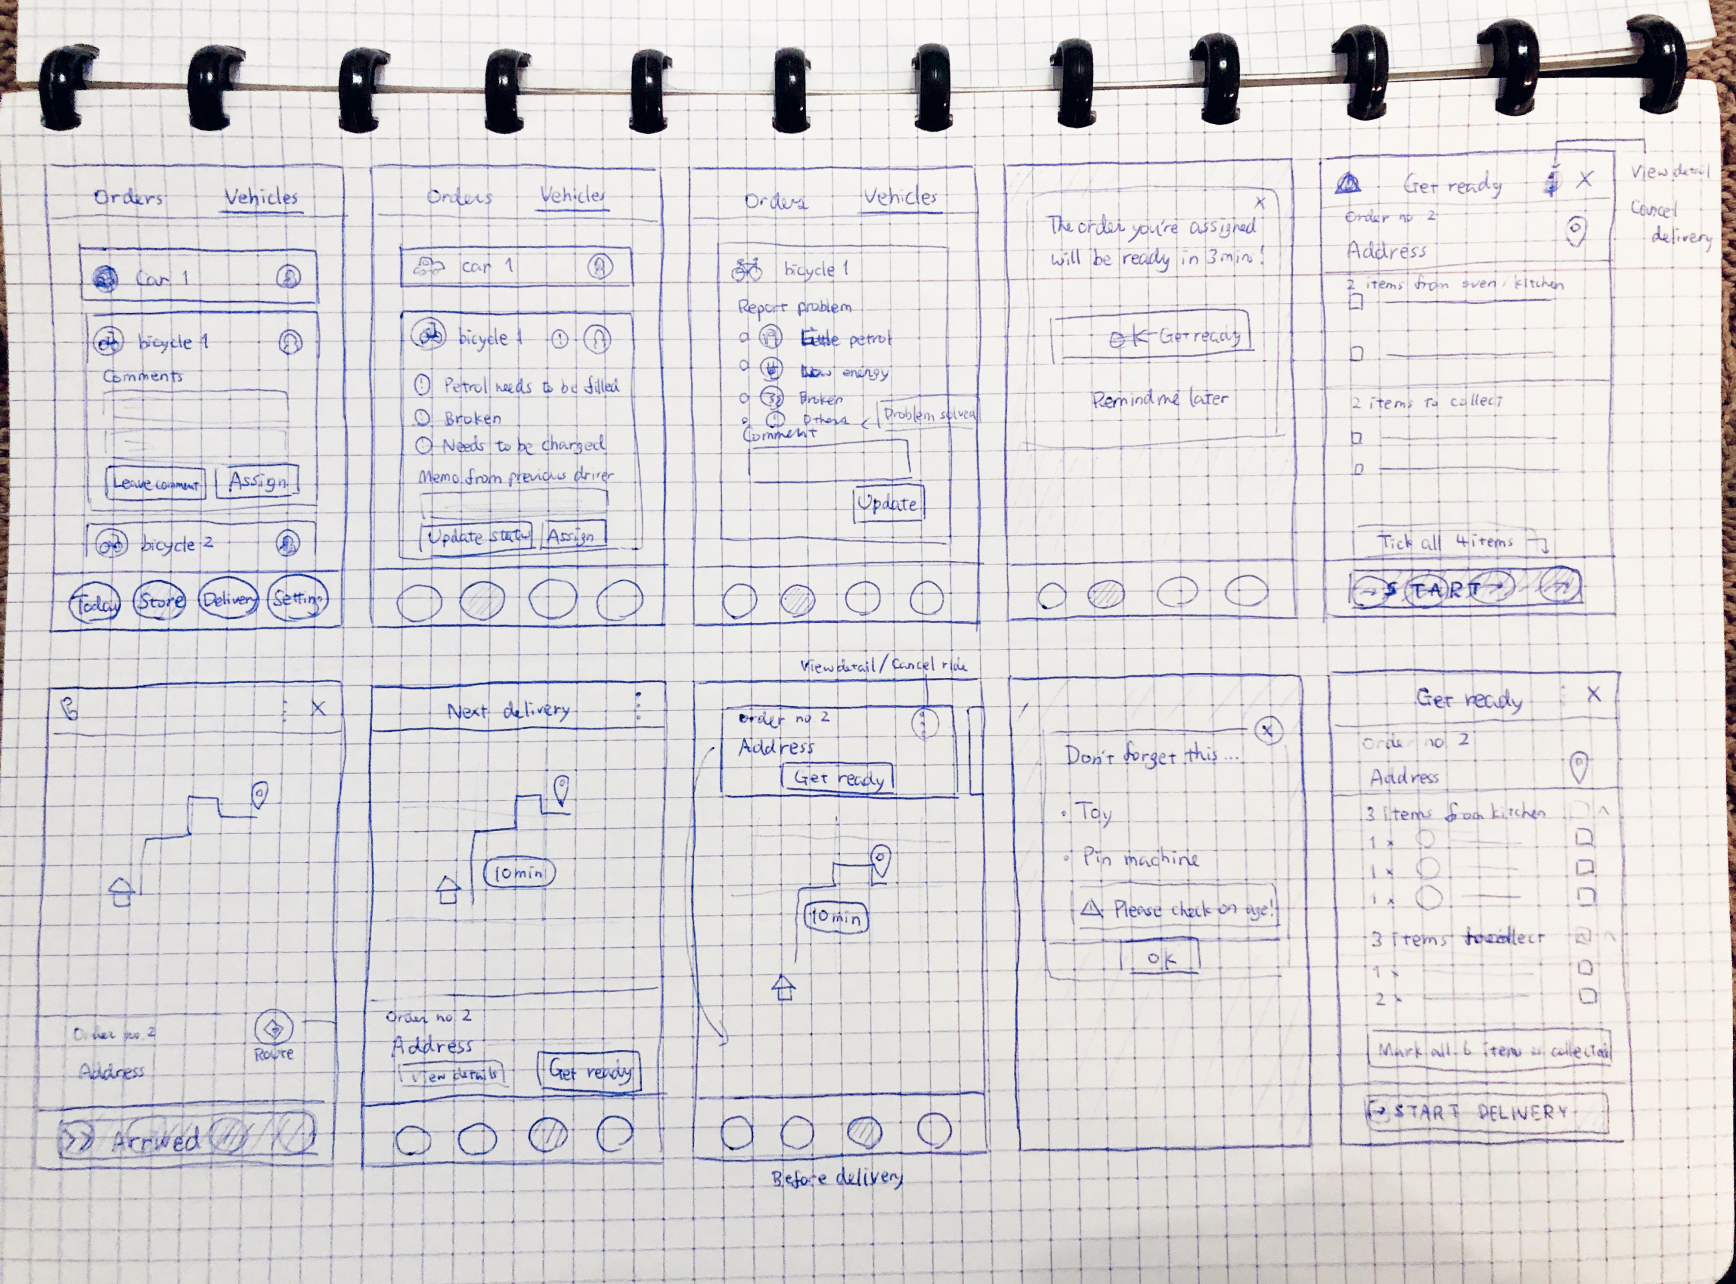 Orders Vehicles
Car 1
bicycle 1
Comments
Leave comment Assign
bicycle 2
Today Store Delivery Setting
Orders Vehicles
car 1
bicycle 1
Petrol needs to be filled
Broken
Needs to be charged
Memo from previous driver
Update status Assign
Orders Vehicles
bicycle 1
Report problem
petrol
Low energy
Broken
Others
Problem solved
Comment
Update
x
The order you're assigned
will be ready in 3min!
OK Get ready
Remind me later
Get ready X
Order no 2
Address
2 items from oven/kitchen
2 items to collect
Tick all 4 items
START
View detail
Cancel
delivery
X
Order no 2
Address
Route
>> Arrived
Next delivery
10min
Order no 2
Address
View details
Get ready
View detail/Cancel ride
Order no 2
Address
Get ready
10min
Before delivery
X
Don't forget this...
• Toy
• Pin machine
Please check on age!
OK
Get ready X
Order no. 2
Address
3 items from kitchen
1 x
1 x
1 x
3 items to collect
1 x
2 x
Mark all 6 items as collected
START DELIVERY